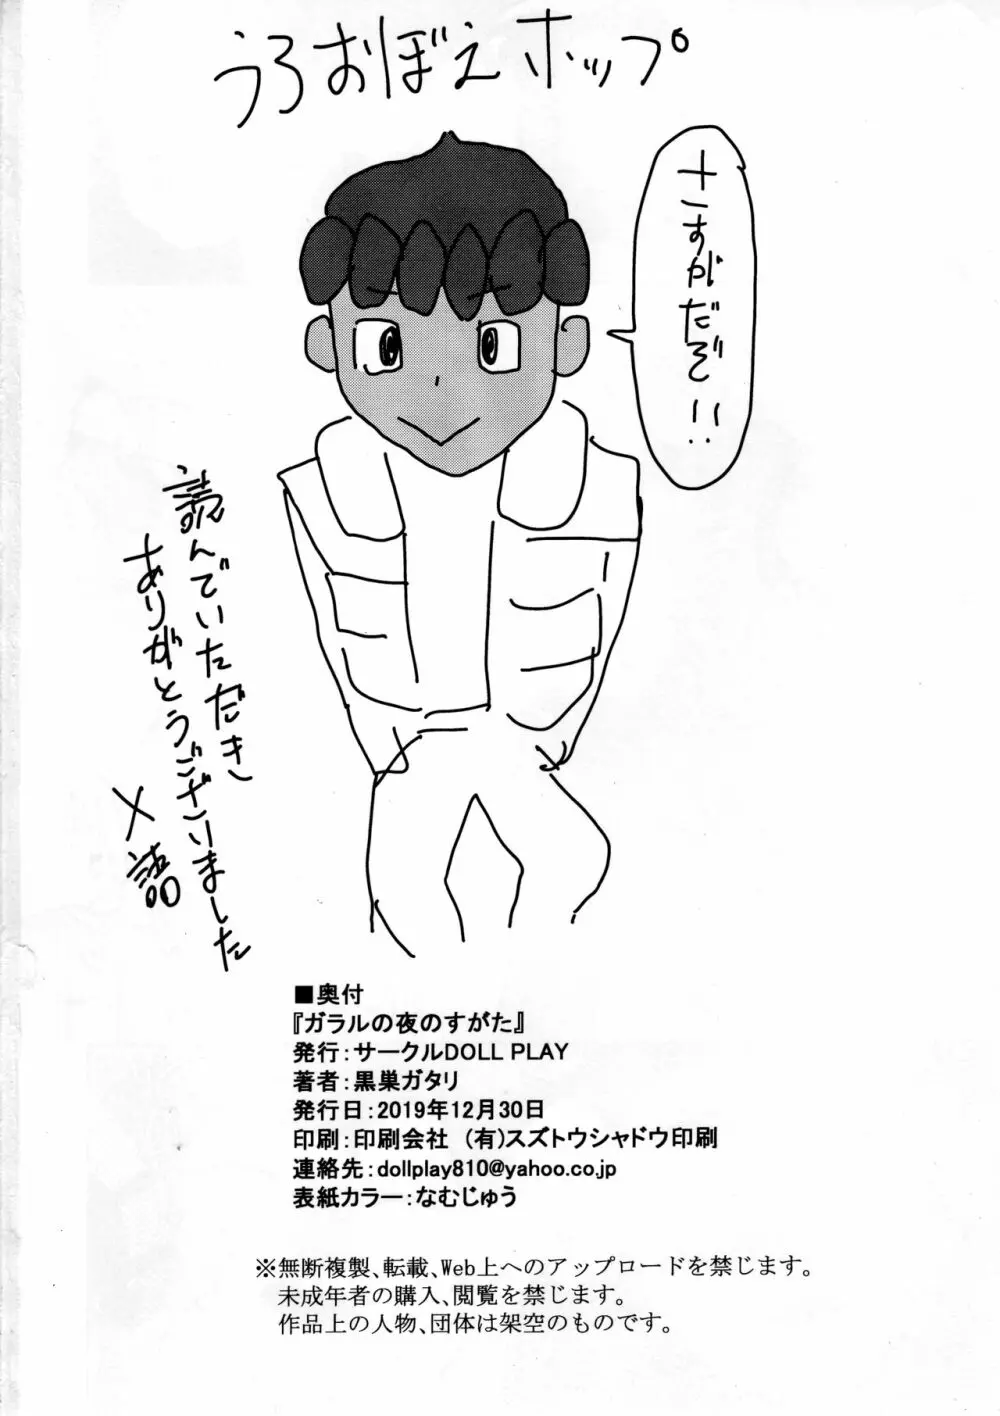 うろおぼえホップ
さすがだぞ!!
読んでいただき
ありがとうございました
メ詰
■奥付
『ガラルの夜のすがた』
発行：サークルDOLL PLAY
著者：黒巣ガタリ
発行日：2019年12月30日
印刷：印刷会社　(有)スズトウシャドウ印刷
連絡先：dollplay810@yahoo.co.jp
表紙カラー：なむじゅう
※無断複製、転載、Web上へのアップロードを禁じます。
未成年者の購入、閲覧を禁じます。
作品上の人物、団体は架空のものです。